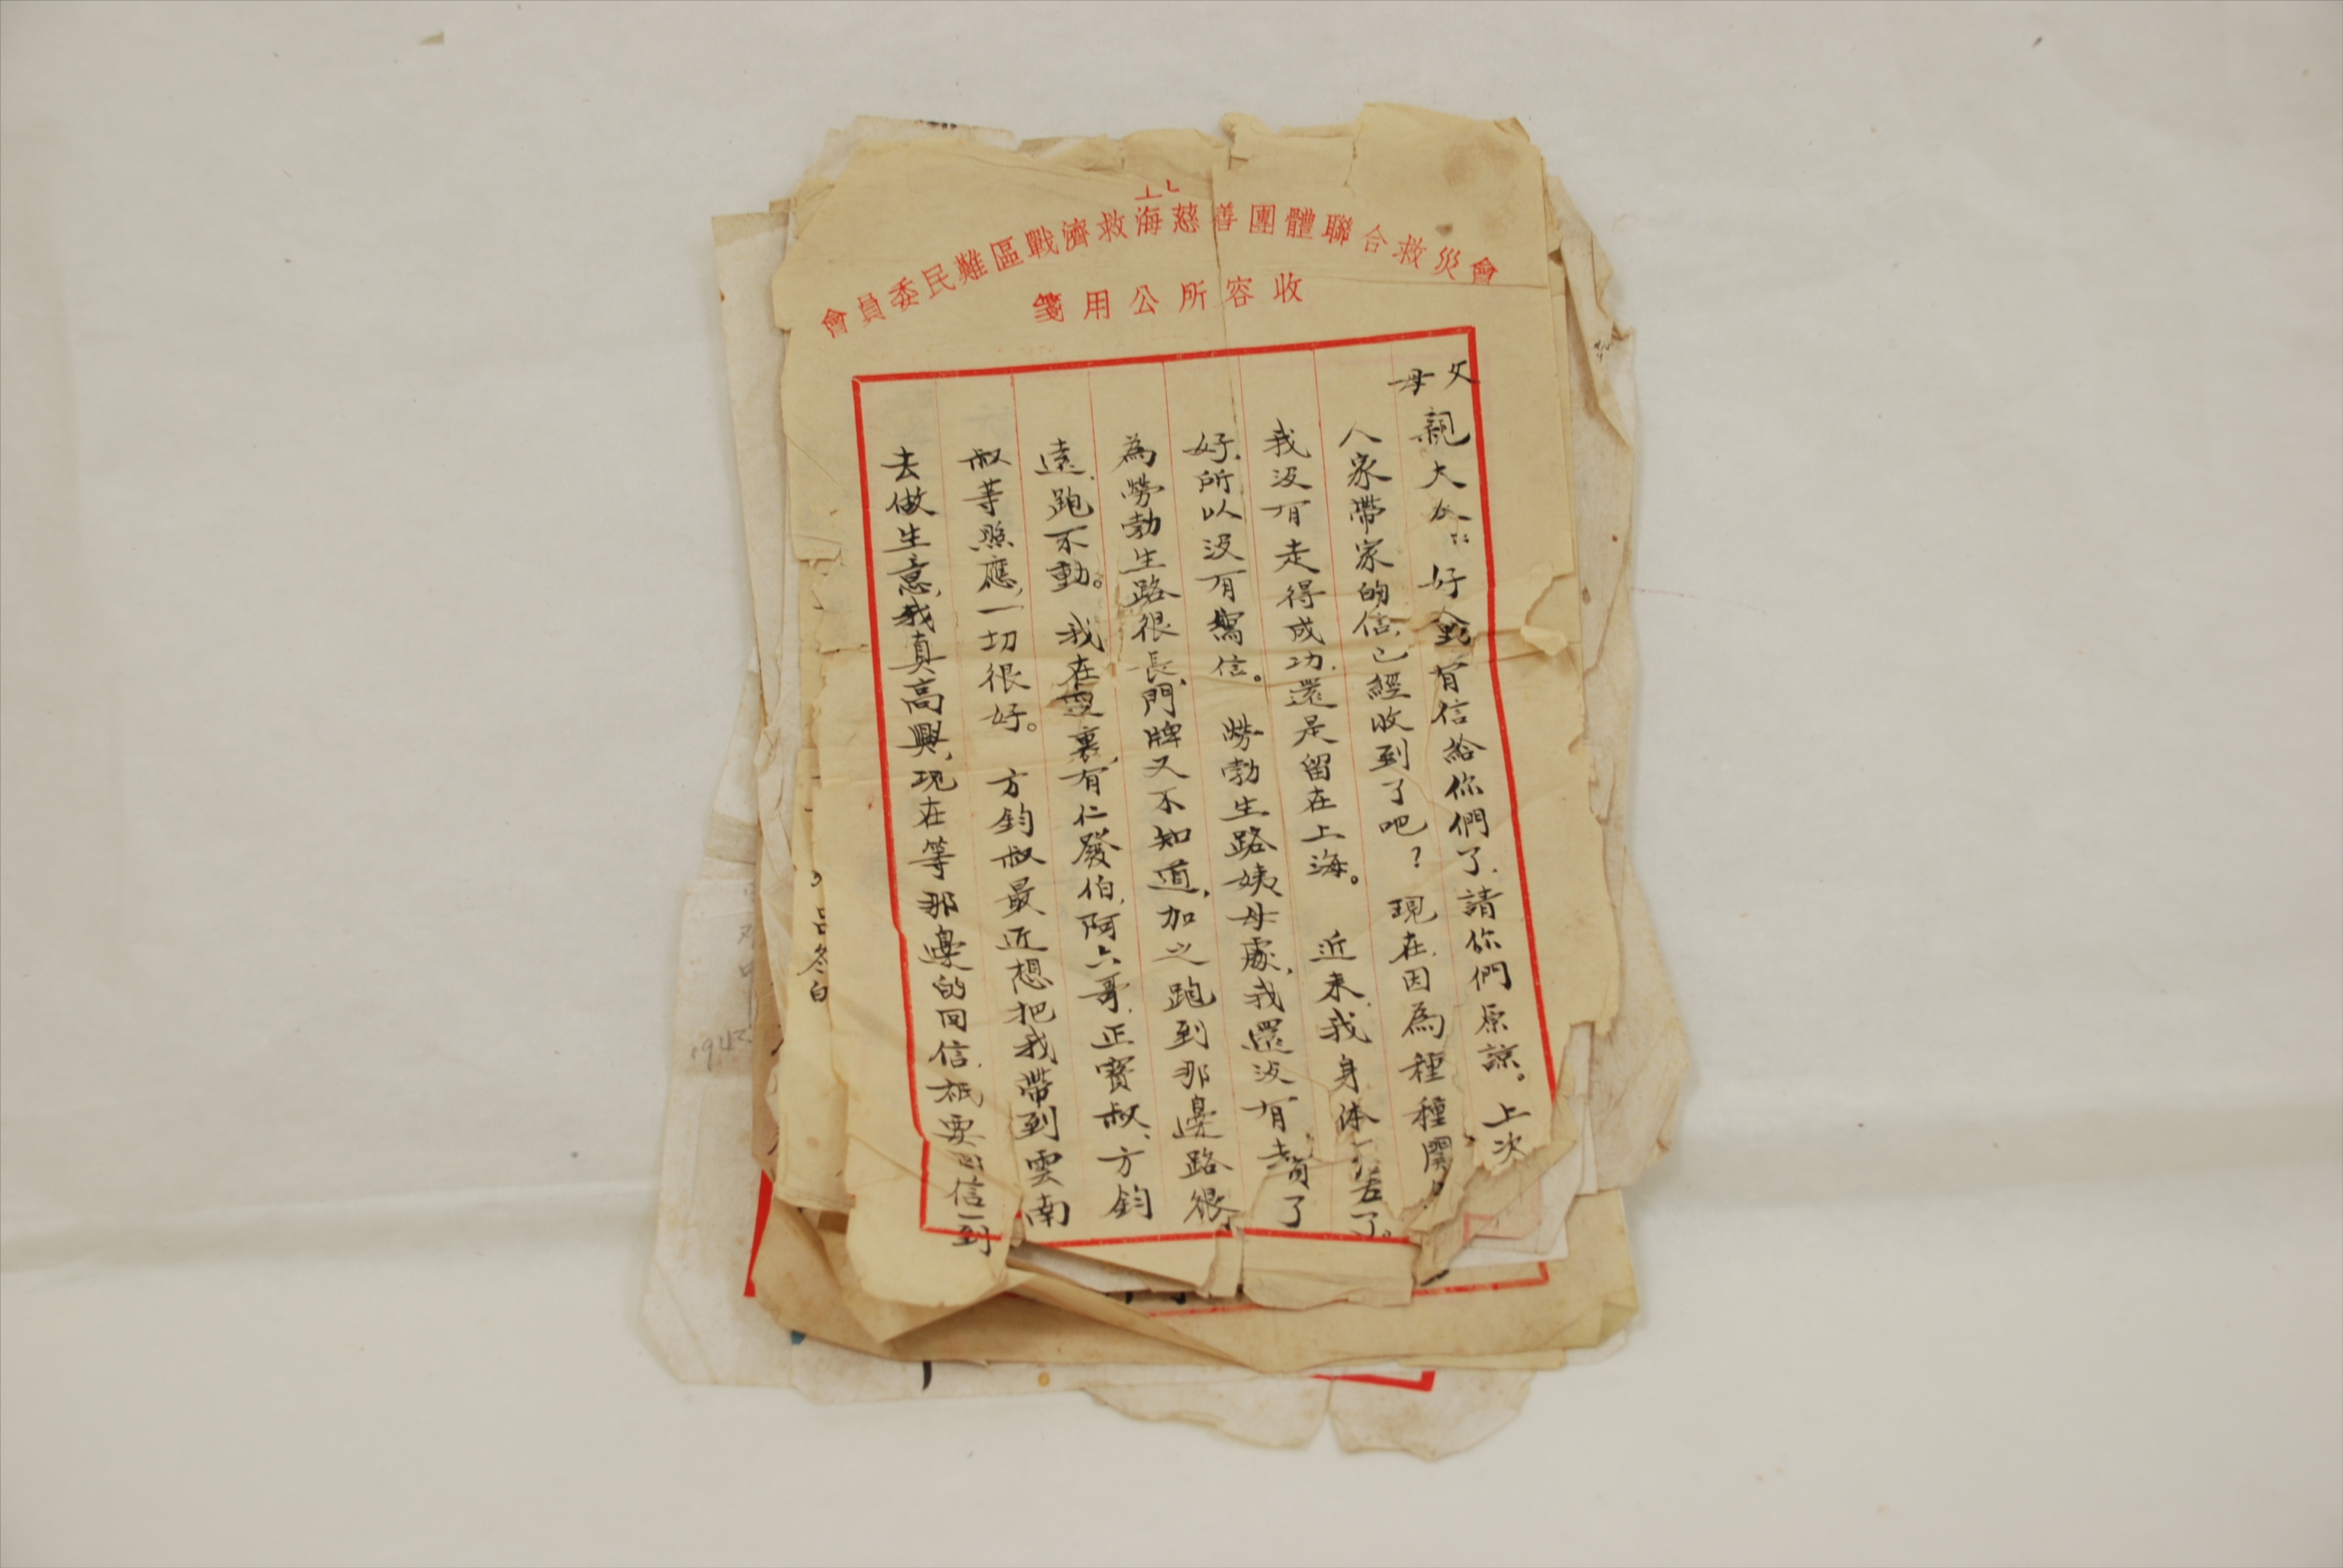 上海慈善團體聯合救災會
救濟戰區難民委員會
收容所公用箋
父母親大人:好幾有信給你們了.請你們原諒。上次
人家帶家的信.已經收到了吧?現在.因為種種關
我没有走得成功.還是留在上海。近来.我身体
好.所以没有寫信。勞勃生路姨母處,我還没有去
為勞勃生路很長,門牌又不知道,加之跑到那邊路很
遠.跑不動。我在這裏,有仁發伯,阿六哥.正寶叔、方鈞
叔等照應,一切很好。方鈞叔最近想把我帶到雲南
去做生意,我真高興,現在等那邊的回信.祇要回信一到
冬白
194